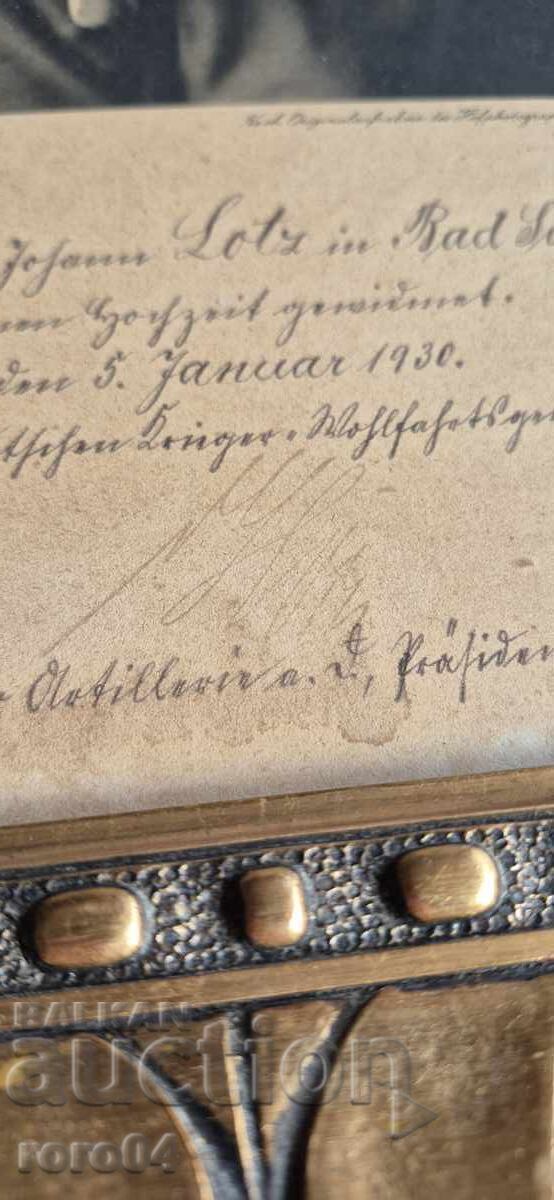 Johann Lotz in Bad
Hochzeit gewidmet.
den 5. Januar 1930.
tschen Krieger-Wohlfahrtsge
Artillerie a. D., Präsiden
BALKAN
auction
roro04